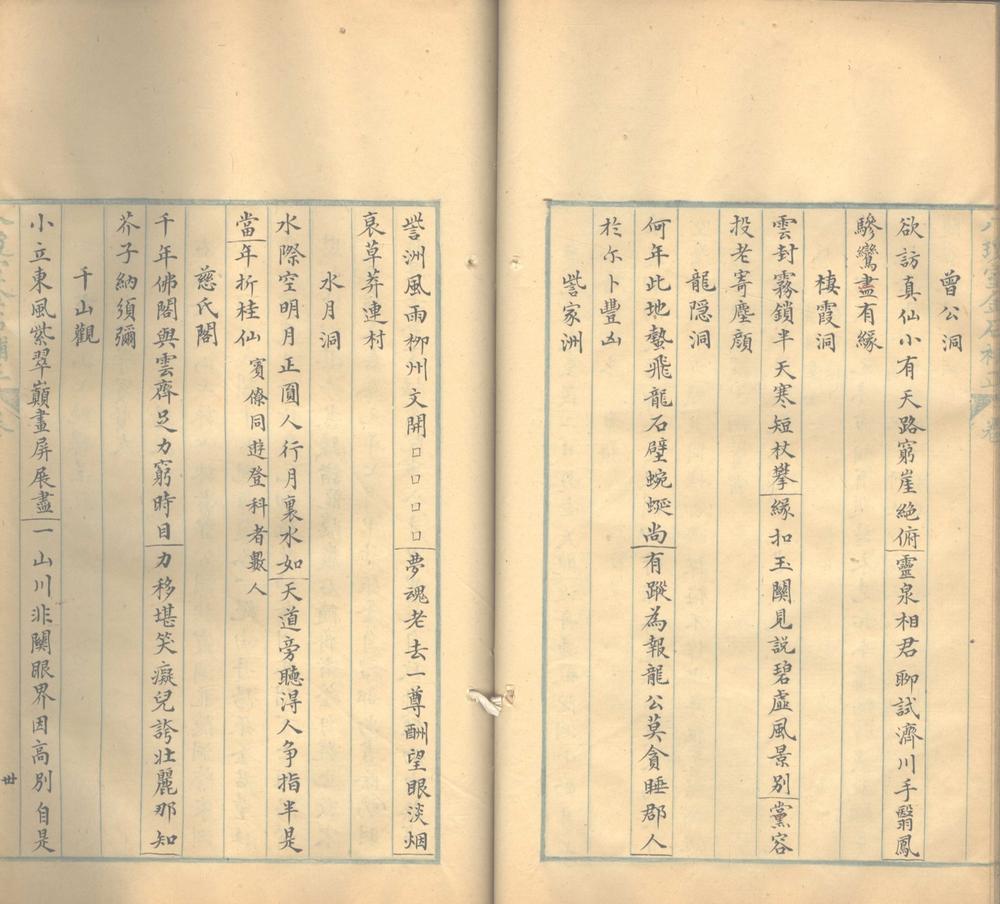 曾公洞
欲訪真仙小有天路窮崖絶俯靈泉相君聊試濟川手翳鳳
驂鸞盡有緣
棲霞洞
雲封霧鎖半天寒短杖攀緣扣玉關見説碧虛風景別黨容
投老寄塵顔
龍隠洞
何年此地蟄飛龍石壁蜿蜒尚有蹤為報龍公莫貪睡郡人
於尓卜豐凶
訾家洲
訾洲風雨柳州文開□□□□夢魂老去一尊酬望眼淡烟
衰草莽連村
水月洞
水際空明月正圓人行月裏水如天道旁聽得人争指半是
當年折桂仙 賓僚同遊登科者數人
慈氏閣
千年佛閣與雲齊足力窮時目力移堪笑癡兒誇壯麗那知
芥子納須彌
千山觀
小立東風紫翠巔畫屏展盡一山川非關眼界因高別自是
卅